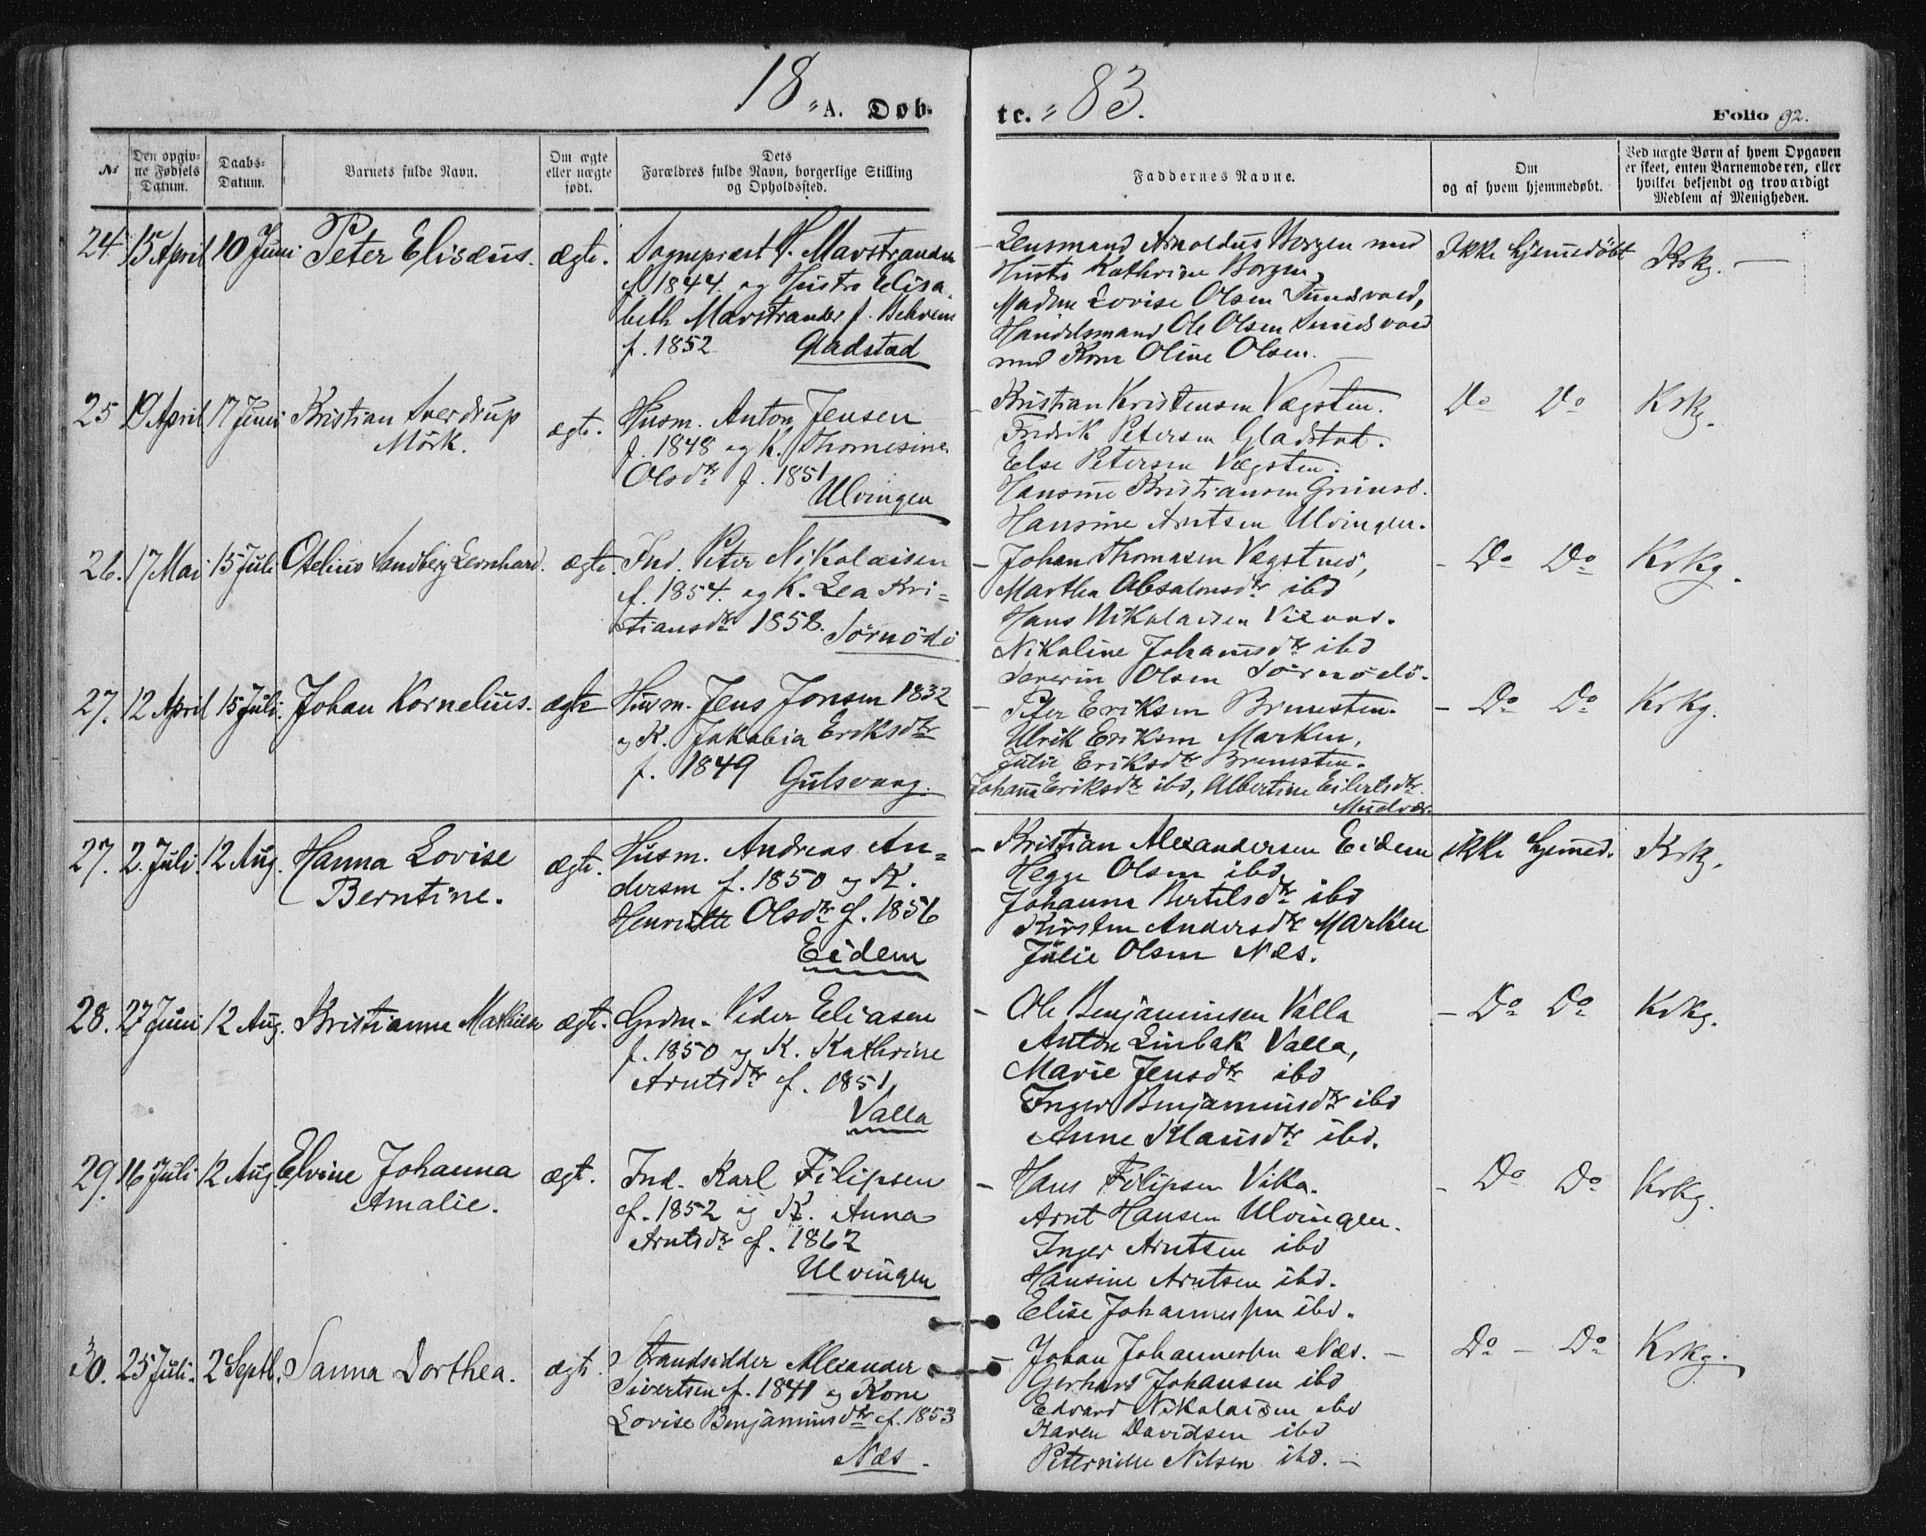 18 "A. Døb-
te. " 83.
Folio 92.
№
Den opgiv-
ne Fødsels
Datum.
Daabs-
Datum.
Barnets fulde Navn.
Om ægte
eller uægte
født.
Dets
Forældres fulde Navn, borgerlige Stilling
og Opholdssted.
Faddernes Navne.
Om
og af hvem hjemmedøbt.
Ved uægte Børn af hvem Opgaven
er skeet, enten Barnemoderen, eller
hvilket bekjendt og troværdigt
Medlem af Menigheden.
24. 15 April 10 Juni Peter Elisæus. ægte.
Sognepræst P. Marstrander
f. 1844. og Hustro Elisa
beth Marstrander f. Behrens
f. 1852. Gladstad
- Lensmand Arnoldus Borgen med
Hustro Kathrine Borgen,
Madm Lovise Olsen Sundsvold,
Handelsmand Ole Olsen Sundsvold
med Kone Oline Olsen. -
Ikke hjemmedøbt Krkg. -
25 19 April 17 Juni Kristian Sverdrup
Mörk. ægte.
Husm. Anton Jensen
f. 1848 og K. Thomesine
Olsdtr f. 1851
Ulvingen
- Kristian Kristensen Vægsten.
Fredrik Petersen Gladstad.
Else Petersen Vægsten.
Hansine Kristiansen Grimsø.
Hansine Arntsen Ulvingen.
Do Do Krkg.
26. 17 Mai 15 Juli Otelius Sandberg Leonhard. ægte.
Ind. Peter Nikolaisen
f. 1854. og K. Lea Kri=
stiansdtr 1858. Sørnødø
- Johan Thomasen Vægstnes,
Martha Absalonsdtr ibd
Hans Nikolaisen
Nikoline Johannsdtr ibd
Severin Olsen Sörnödö.
- Do Do Krkg.
27. 12 April 15 Juli. Johan Kornelius. ægte
Husm. Jens Jonsen 1832
og K. Jakobia Eriksdtr
f. 1849 Gulsvaag.
- Peter Eriksen Brunsten.
Ulrik Eriksen Marken,
Julie Eriksdtr Brunsten.
Johanna Eriksdtr ibd, Albertine Eilertsdtr
Mudvær.
- Do Do Krkg.
27. 2 Juli. 12 Aug. Hanna Lovise
Berntine. ægte.
Husm. Andreas An=
dersen f. 1850 og K.
Henriette Olsdtr f. 1856
Eidem
- Kristian Alexandersen Eidem
Hegge Olsen ibd
Johanna Bertilsdtr ibd
Kirsten Andersdtr Marken
Julie Olsen Næs.
ikke hjemmed. Krkg.
28. 27 Juni 12 Aug. Kristianna Mathilde ægte.
Grdm. Peder Eliasen
f. 1850 og K. Kathrine
Arntsdtr f. 1851
Valla
- Ole Benjaminsen Valla
Anton Linbak Valla,
Marie Jensdtr ibd
Inger Benjaminsdtr ibd
Anne Klausdtr ibd.
- Do Do Krkg.
29. 16 Juli 12 Aug. Elvine Johanna
Amalie. ægt.
Ind. Karl Filipsen
f. 1852 og K. Anna
Arntsdtr f. 1862
Ulvingen
- Hans Filipsen Vika.
Arnt Hansen Ulvingen.
Inger Arntsen ibd
Hansine Arntsen ibd.
Elise Johannessen ibd.
- Do Do Krkg.
30. 25 Juli. 2 Septb. Sanna Dorthea. ægte
Strandsidder Alexander
Sivertsen f. 1841 og Kone
Lovise Benjaminsdtr f. 1853
Næs.
- Johan Johannessen Næs. -
Gerhard Johansen ibd
Edvard Nikolaisen ibd
Karen Davidsen ibd
Peternille Nilsen ibd. -
Do - Do Krkg.